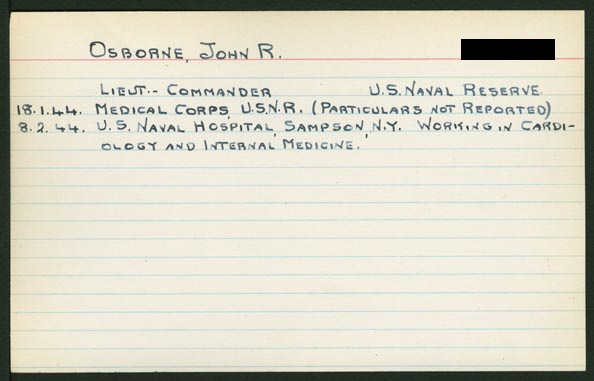 OSBORNE, JOHN R.
LIEUT.- COMMANDER U.S. NAVAL RESERVE.
18.1.44. MEDICAL CORPS, U.S.N.R. (PARTICULARS NOT REPORTED)
8.2.44. U.S. NAVAL HOSPITAL, SAMPSON, N.Y. WORKING IN CARDI-
OLOGY AND INTERNAL MEDICINE.